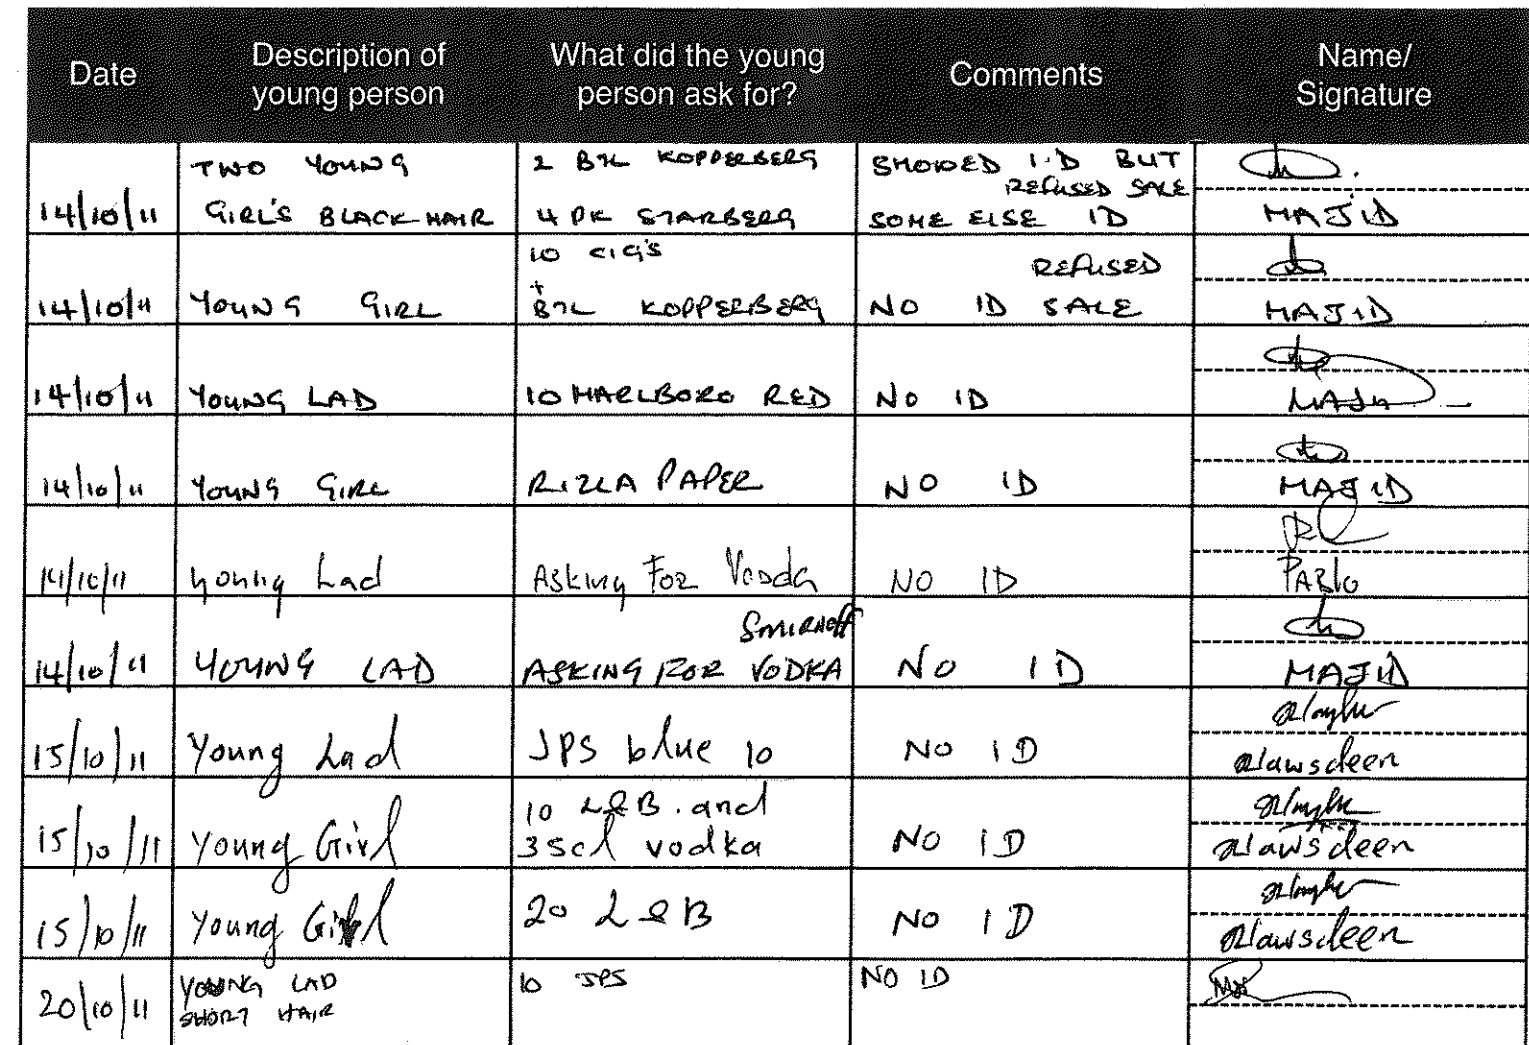 Date
Description of
young person
What did the young
person ask for?
Comments
Name/
Signature
14/10/11
TWO YOUNG
GIRL'S BLACK HAIR
2 BTL KOPPERBERG
4 PK STARBERG
SHOWED I.D BUT
REFUSED SALE
SOME ELSE ID
MAJID
14/10/11
YOUNG GIRL
10 CIG'S
+
BTL KOPPERBERG
REFUSED
NO ID SALE
MAJID
14/10/11
YOUNG LAD
10 MARLBORO RED
NO ID
14/10/11
YOUNG GIRL
RIZLA PAPER
NO ID
MAJID
14/10/11
young Lad
Asking For Vodda
NO ID
PABlo
14/10/11
YOUNG LAD
Smirnoff
ASKING FOR VODKA
NO ID
MAJID
15/10/11
Young Lad
JPS blue 10
NO ID
Nawsdeen
15/10/11
Young Girl
10 L&B. and
35cl vodka
NO ID
Nawsdeen
15/10/11
Young Girl
20 L&B
NO ID
Nawsdeen
20/10/11
YOUNG LAD
SHORT HAIR
10 JPS
NO ID